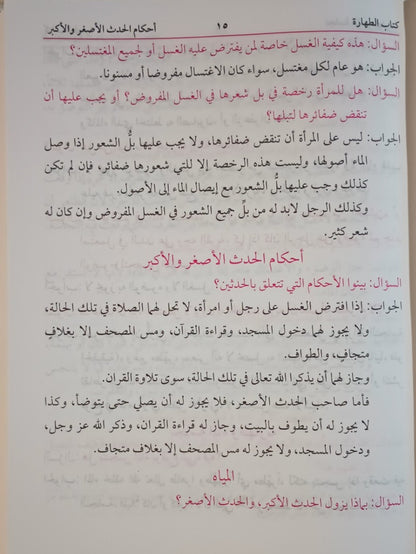 كتاب الطهارة ١٥ أحكام الحدث الأصغر والأكبر
السؤال: هذه كيفية الغسل خاصة لمن يفترض عليه الغسل أو لجميع المغتسلين؟
الجواب: هو عام لكل مغتسل، سواء كان الاغتسال مفروضا أو مسنونا.
السؤال: هل للمرأة رخصة في بل شعرها في الغسل المفروض؟ أو يجب عليها أن
تنقض ضفائرها لتبلها؟
الجواب: ليس على المرأة أن تنقض ضفائرها، ولا يجب عليها بلُّ الشعور إذا وصل
الماء أصولها، وليست هذه الرخصة إلا للتي شعورها ضفائر، فإن لم تكن
كذلك وجب عليها بلُّ الشعور مع إيصال الماء إلى الأصول.
وكذلك الرجل لابد له من بلِّ جميع الشعور في الغسل المفروض وإن كان له
شعر كثير.
أحكام الحدث الأصغر والأكبر
السؤال: بينوا الأحكام التي تتعلق بالحدثين؟
الجواب: إذا افترض الغسل على رجل أو امرأة، لا تحل لهما الصلاة في تلك الحالة،
ولا يجوز لهما دخول المسجد، وقراءة القرآن، ومس المصحف إلا بغلافٍ
متجافٍ، والطواف.
وجاز لهما أن يذكرا الله تعالى في تلك الحالة، سوى تلاوة القران.
فأما صاحب الحدث الأصغر، فلا يجوز له أن يصلي حتى يتوضأ، وكذا
لا يجوز له أن يطوف بالبيت، وجاز له قراءة القران، وذكر الله عز وجل،
ودخول المسجد، ولا يجوز له مس المصحف إلا بغلاف متجاف.
المياه
السؤال: بماذا يزول الحدث الأكبر، والحدث الأصغر؟